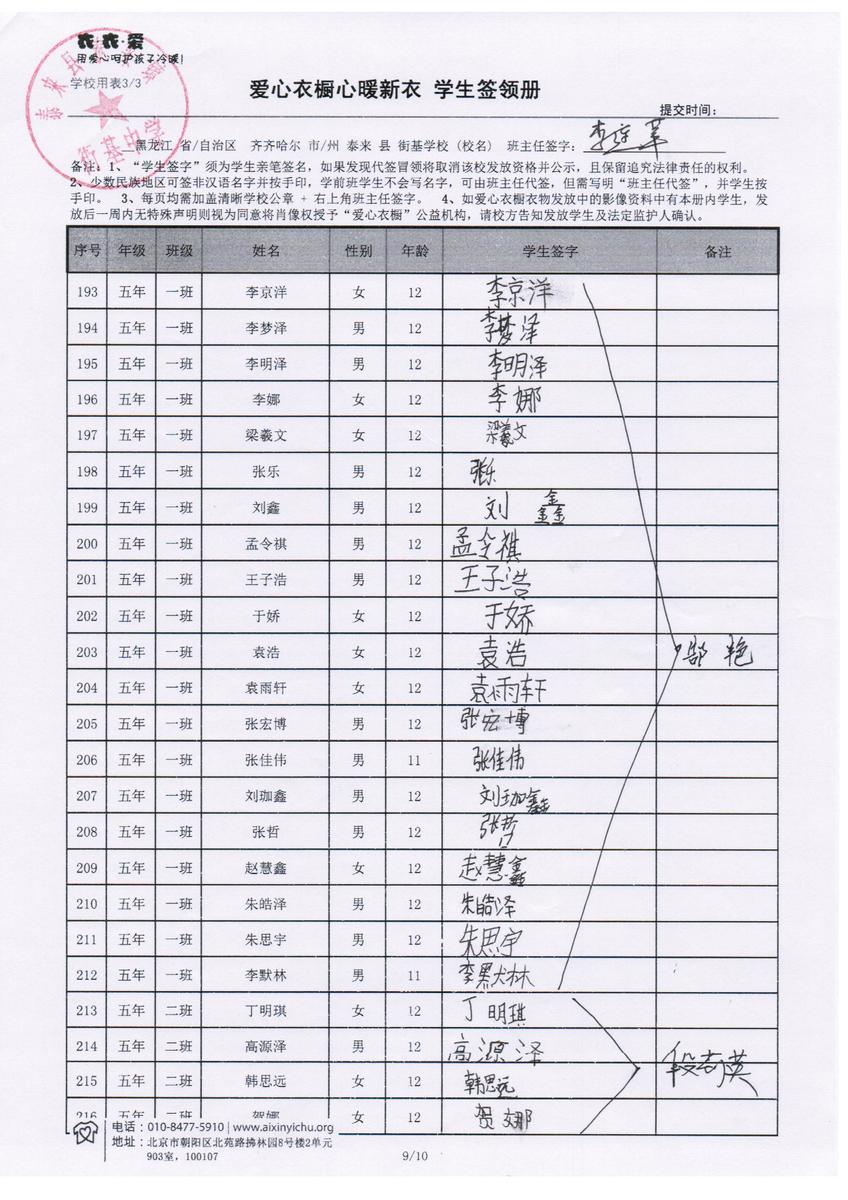 衣·衣·爱
用爱心呵护孩子冷暖!
学校用表3/3
泰来县
街基中学
爱心衣橱心暖新衣 学生签领册
提交时间:
黑龙江 省/自治区 齐齐哈尔 市/州 泰来 县 街基学校(校名) 班主任签字:
备注:1、“学生签字”须为学生亲笔签名,如果发现代签冒领将取消该校发放资格并公示,且保留追究法律责任的权利。
2、少数民族地区可签非汉语名字并按手印,学前班学生不会写名字,可由班主任代签,但需写明“班主任代签”,并学生按
手印。 3、每页均需加盖清晰学校公章 + 右上角班主任签字。 4、如爱心衣橱衣物发放中的影像资料中有本册内学生,发
放后一周内无特殊声明则视为同意将肖像权授予“爱心衣橱”公益机构,请校方告知发放学生及法定监护人确认。
序号 年级 班级 姓名 性别 年龄 学生签字 备注
193 五年 一班 李京洋 女 12 李京洋
194 五年 一班 李梦泽 男 12 李梦泽
195 五年 一班 李明泽 男 12 李明泽
196 五年 一班 李娜 女 12 李娜
197 五年 一班 梁羲文 女 12 梁羲文
198 五年 一班 张乐 男 12 张乐
199 五年 一班 刘鑫 男 12 刘 鑫
200 五年 一班 孟令祺 男 12 孟令祺
201 五年 一班 王子浩 男 12 王子浩
202 五年 一班 于娇 女 12 于娇
203 五年 一班 袁浩 女 12 袁浩 郜艳
204 五年 一班 袁雨轩 女 12 袁雨轩
205 五年 一班 张宏博 男 12 张宏博
206 五年 一班 张佳伟 男 11 张佳伟
207 五年 一班 刘珈鑫 男 12 刘珈鑫
208 五年 一班 张哲 男 12 张哲
209 五年 一班 赵慧鑫 女 12 赵慧鑫
210 五年 一班 朱皓泽 男 12 朱皓泽
211 五年 一班 朱思宇 男 12 朱思宇
212 五年 一班 李默林 男 11 李默林
213 五年 二班 丁明琪 女 12 丁明琪
214 五年 二班 高源泽 男 12 高源泽
215 五年 二班 韩思远 女 12 韩思远 段志英
216 五年 二班 贺娜 女 12 贺娜
电话:010-8477-5910 | www.aixinyichu.org
地址:北京市朝阳区北苑路拂林园8号楼2单元
903室,100107
9/10